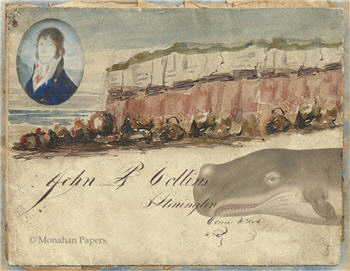 John P Collins
Stonington
Conn
© Monahan Papers